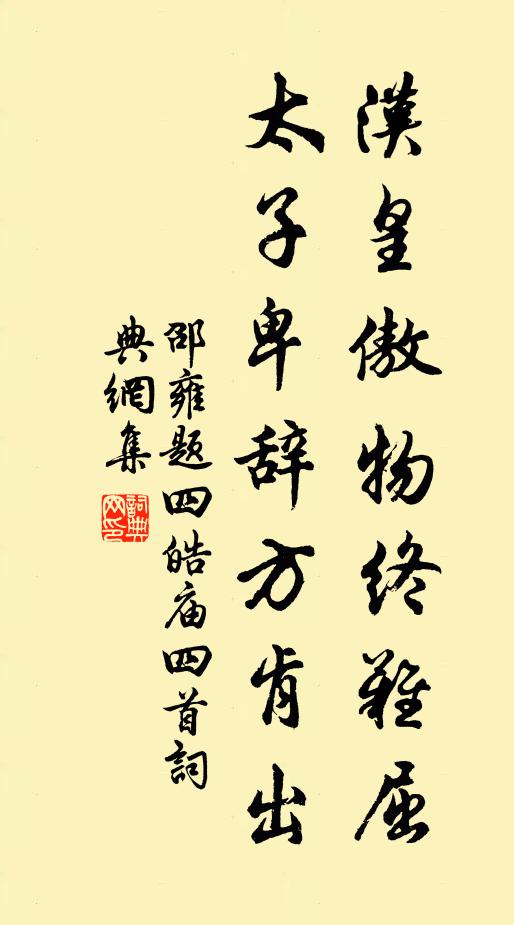 漢皇傲物終難屈
太子卑辞方肯出
邵雍题四皓庙四首詞
典網集
詞典網印